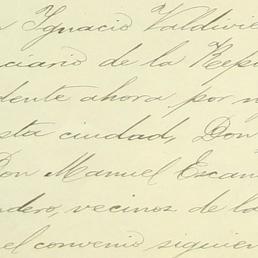 Ignacio Valdivie
ciario de la Repú
dente ahora por m
sta ciudad, Don
Don Manuel Escan
dero, vecinos de la
el convenio siguien